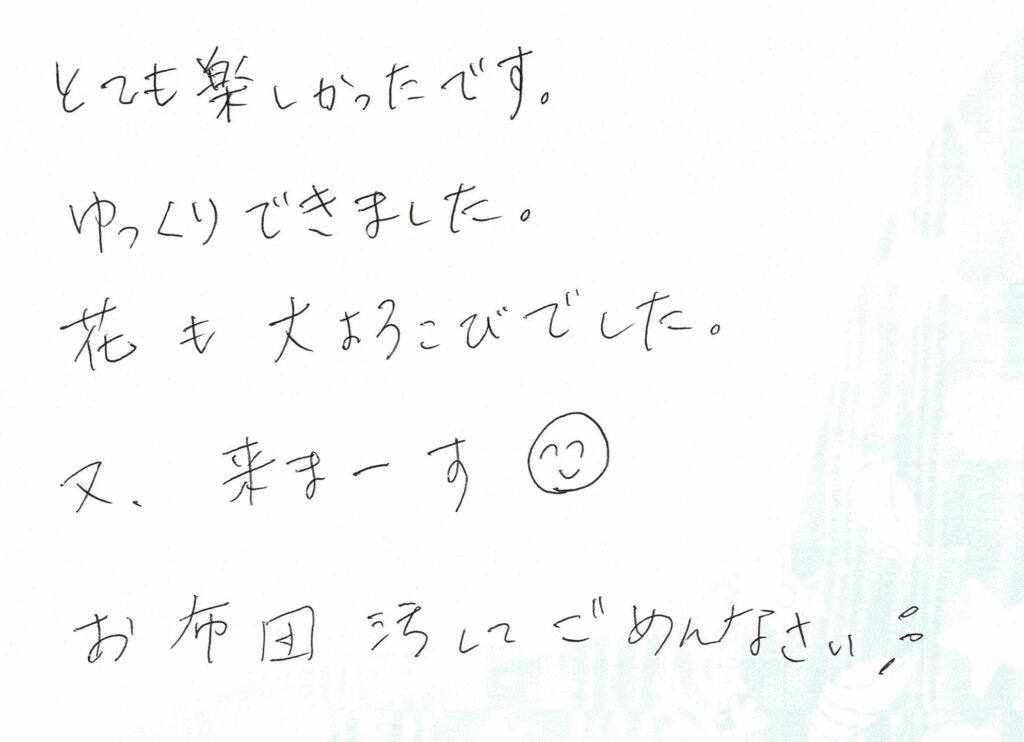 とても楽しかったです。
ゆっくりできました。
花も大よろこびでした。
又、来まーす
お布団汚してごめんなさい